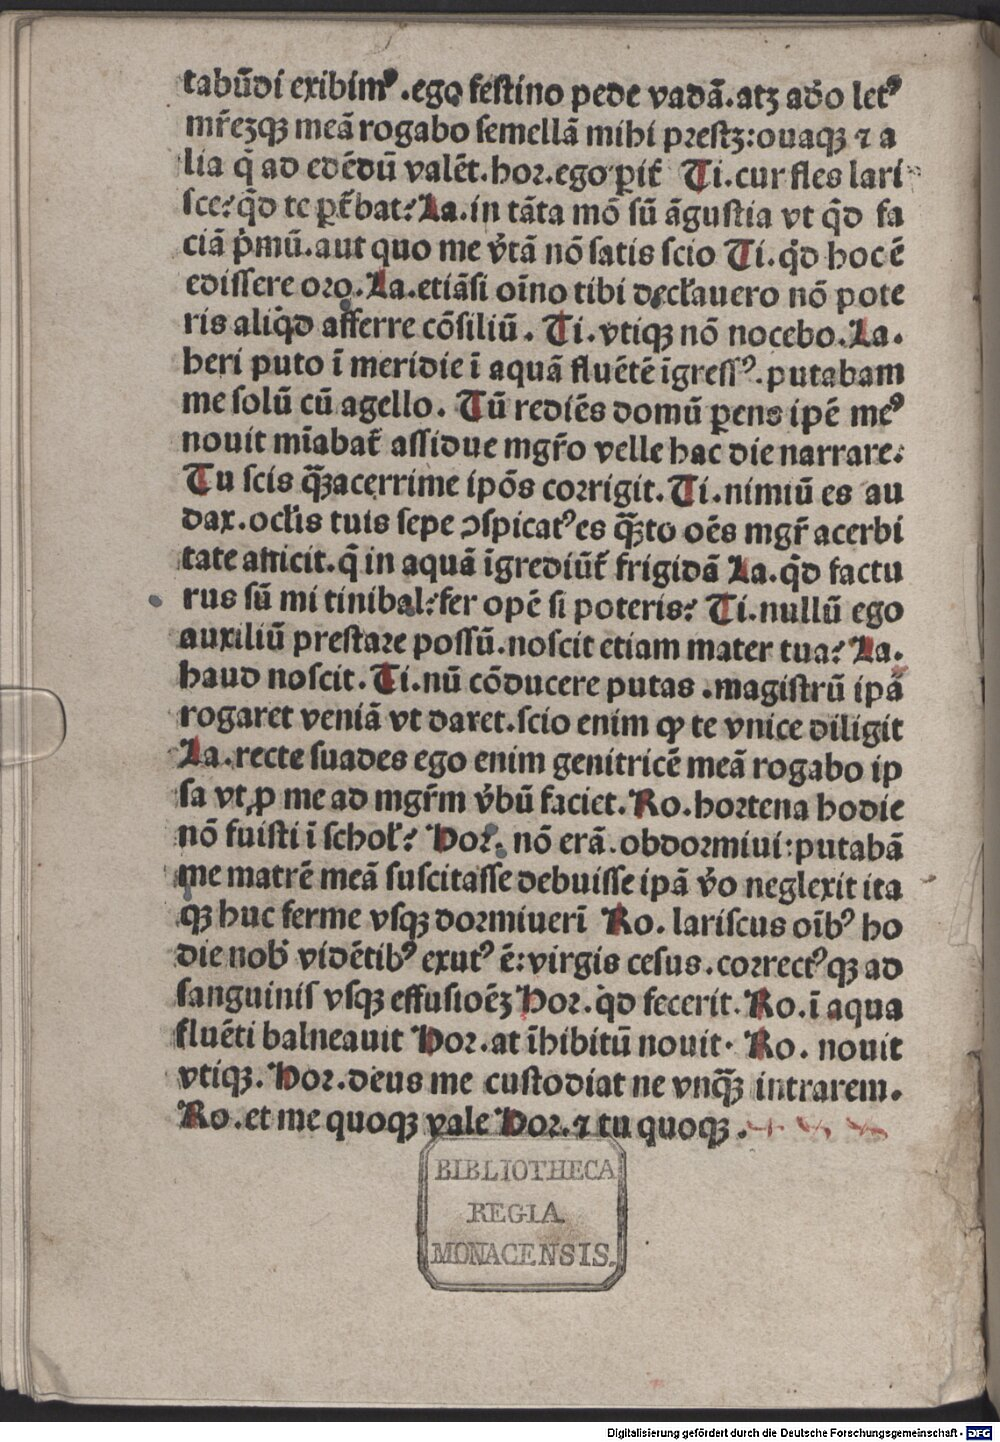 tabūdi exibimꝰ.ego festino pede vadā.atꝫ adͦo letꝰ
mr̄eꝫqꝫ meā rogabo semellā mihi prestꝫ:ouaqꝫ ⁊ a
lia q̄ ad edēdū valēt.hoꝛ.ego ꝑit᷑ Ti.cur fles lari
sce?qͥd te ꝑt᷑bat?La.in tāta mō sū āgustia vt qͥd fa
ciā pͥmū.aut quo me v̓tā nō satis scio Ti.qͥd hoc ē
edissere oꝛo.La.etiāsi oīno tibi declͣauero nō pote
ris aliqͥd afferre cōsiliū. Ti.vtiqꝫ nō nocebo.La.
heri puto ī meridie ī aquā fluētē īgressꝰ.putabam
me solū cū agello. Tū rediēs domū ꝑens ipē meꝰ
nouit mīabat᷑ assidue mgr̄o velle hac die narrare.
Tu scis qͣꝫacerrime ipōs coꝛrigit.Ti.nimiū es au
dax.ocƚis tuis sepe ↄspicatꝰes qͣꝫto oēs mgr̄ acerbi
tate afficit.q̄ in aquā īgrediūt᷑ frigidā La.qͥd factu
rus sū mi tinibal?fer opē si poteris? Ti.nullū ego
auxiliū prestare possū.noscit etiam mater tua? La.
haud noscit.Ti.nū cōducere putas .magistrū ipā
rogaret veniā vt daret.scio enim ꝙ te vnice diligit
La.recte suades ego enim genitricē meā rogabo ip
sa vt ꝓ me ad mgr̄m v̓bū faciet.Ro.hoꝛtena hodie
nō fuisti ī scholˀ? Hoꝛ. nō erā.obdoꝛmiui:putabā
me matrē meā suscitasse debuisse ipā v̓o neglexit ita
qꝫ huc ferme vsqꝫ doꝛmiuerī Ro. lariscus oībꝰ ho
die nobˀ vidētibꝰ exutꝰ ē:virgis cesus.coꝛrectꝰqꝫ ad
sanguinis vsqꝫ effusioēꝫ Hoꝛ.qͥd fecerit.Ro.ī aqua
fluēti balneauit Hoꝛ.at īhibitū nouit. Ro. nouit
vtiqꝫ.Hoꝛ.deus me custodiat ne vnqͣꝫ intrarem.
Ro.et me quoqꝫ vale Hoꝛ.⁊ tu quoqꝫ.
BIBLIOTHECA
REGIA
MONACENSIS.
Digitalisierung gefördert durch die Deutsche Forschungsgemeinschaft - DFG